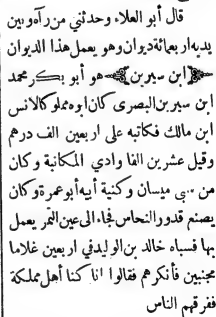 قال أبو العلاء وحدثني من رآه وبين
يديه اربعمائة ديوان وهو يعمل هذا الديوان
﴿ابن سيرين﴾ هو أبو بكر محمد
ابن سيرين البصرى كان ابوه مملوكا لانس
ابن مالك فكاتبه على اربعين الف درهم
وقيل عشرين الفا وادي المكاتبة وكان
من سبي ميسان وكنية أبيه أبو عمرة وكان
يصنع قدور النحاس فجاء الى عين التمر يعمل
بها فسباه خالد بن الوليد في اربعين غلاما
مجنبين فأنكرهم فقالوا انا كنا أهل مملكة
ففرقهم الناس